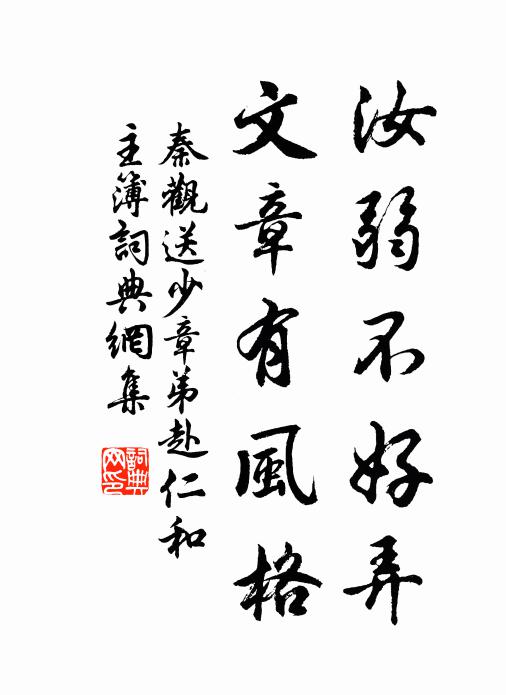 汝弱不好弄
文章有風格
秦觀送少章弟赴仁和
主簿詞典網集
詞典网印